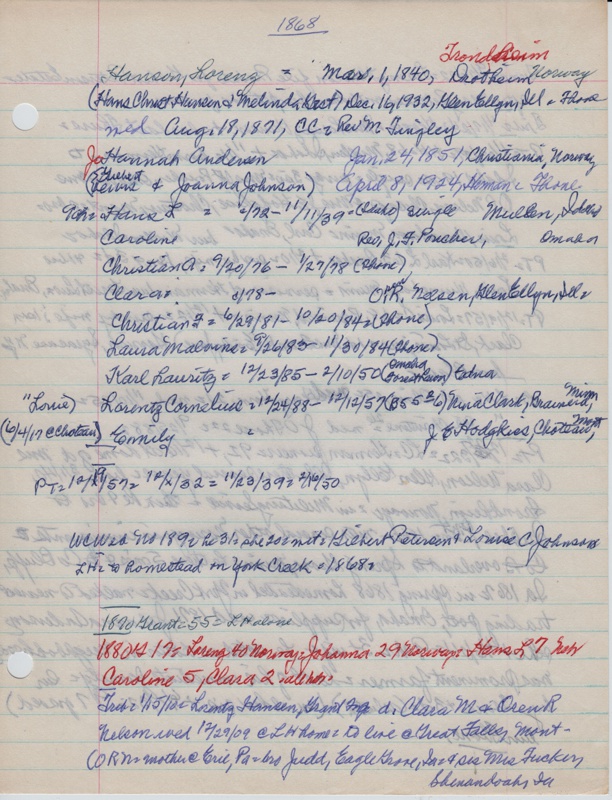 1868
Trondheim
Hanson, Loreng = Mar, 1, 1840, Drotheim Norway
(Hans Christ Hansen & Melinda Drot), Dec. 16, 1932, Glen Ellyn, Ill = Fhone
med Aug. 18, 1871, CC = Rev M. Tingley
Jo Hannah Andersen Jan, 24, 1851, Christiania, Norway
(Lewis & Joanna Johnson) April 8, 1924, Homan = Fhone
9ch = Hans L = 2/72 - 11/11/39 = (Idaho) single Mullen, Idaho
Caroline Rev, J. F. Poucher, Omaha
Christian A = 9/20/76 - 1/27/78 (Fhone)
Clara = 2/78 - O.R. Nelson, Glen Ellyn, Ill =
Christian F = 6/29/81 - 10/20/84 = (Fhone)
Laura Malvine = 9/26/83 - 11/30/84 (Fhone)
Karl Lauritz = 12/23/85 - 2/10/50 (Omaha Forest Lawn) Edna
"Lorie) Lorentz Cornelius = 12/24/88 - 12/12/57 Nina Clark, Brainerd, Minn
(6/4/17 @ Choteau) Emily = J. E Hodgkiss, Choteau, Mont
PT = 12/19/57 = 12/1/32 = 11/23/39 = 2/16/50
WCW 20 No 189 = he 31 = she 20 = wit = Giebert Petersen & Louise C Johnson
LH = to Homestead on York Creek = 1868 =
1870 Grant = 55 = LH alone
1880 G 17 = Loreng 40 Norway = Johanna 29 Norway = Hans L 7 Neb
Caroline 5, Clara 2
Trib = 1/15/10 = Lorentz Hansen, d, Clara M & Oren R
Nelson wed 12/29/09 @ LH home = to live @ Great Falls, Mont -
(ORN = mother @ Erie, Pa = bro Judd, Eagle Grove, Ia = & sis Mrs Tucker,
Shenandoah, Ia